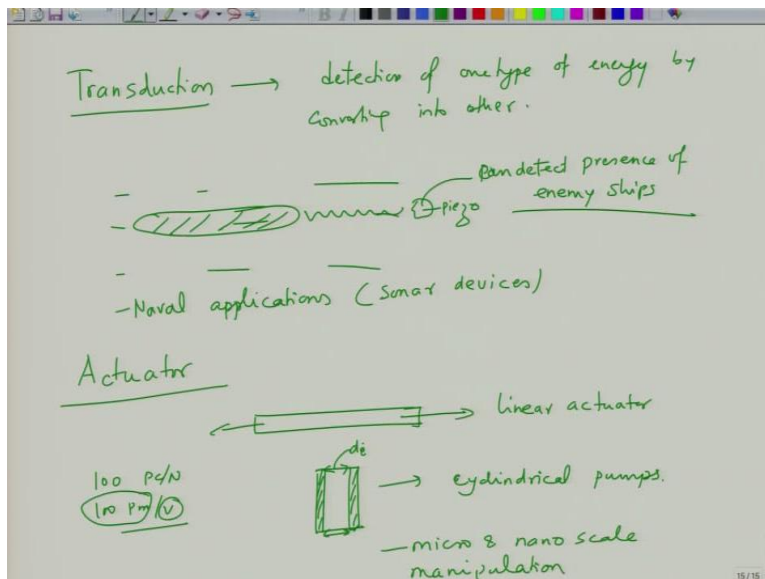 Transduction → detection of one type of energy by
converting into other.
can detect presence of
enemy ships
piezo
- Naval applications (Sonar devices)
Actuator
→ linear actuator
di
100 pC/N
100 pm/V
→ cylindrical pumps.
- micro & nano scale
manipulation
15/15